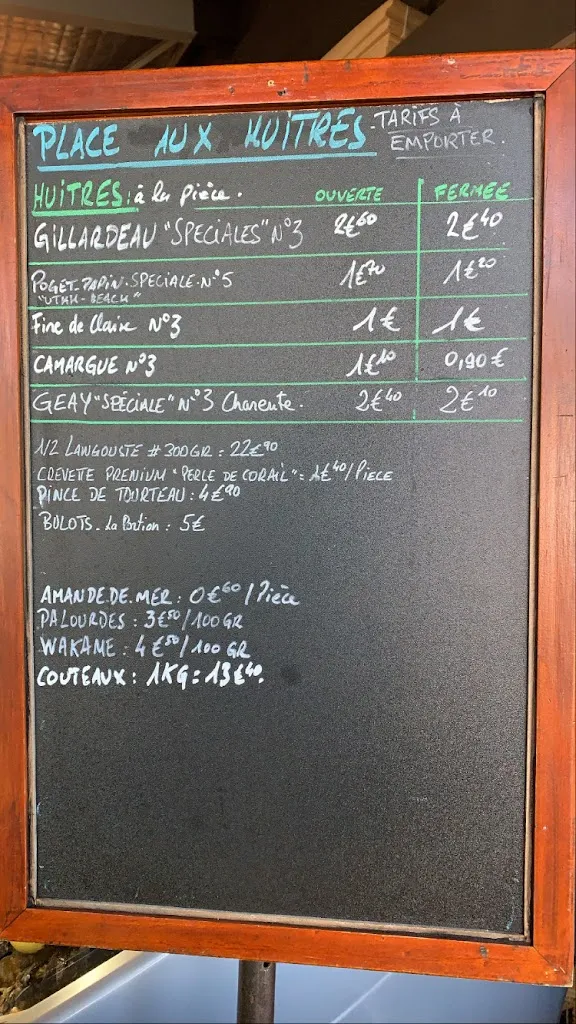 PLACE AUX HUITRES - TARIFS À EMPORTER.
HUITRES: à la pièce. OUVERTE FERMEE
GILLARDEAU "SPECIALES" N°3 2€60 2€40
POGET-PAPIN-SPECIALE-N°5 1€70 1€20
"UTAH-BEACH"
Fine de Claire N°3 1€ 1€
CAMARGUE N°3 1€10 0,90€
GEAY "SPÉCIALE" N°3 Charente. 2€40 2€10
1/2 LANGOUSTE # 300GR : 22€90
CREVETTE PREMIUM "PERLE DE CORAIL" = 1€40/PIECE
PINCE DE TOURTEAU : 4€90
BULOTS - La Portion : 5€
AMANDE.DE.MER : 0€60/Pièce
PALOURDES : 3€50/100GR
WAKAME : 4€50/100 GR
COUTEAUX : 1KG : 13€40.